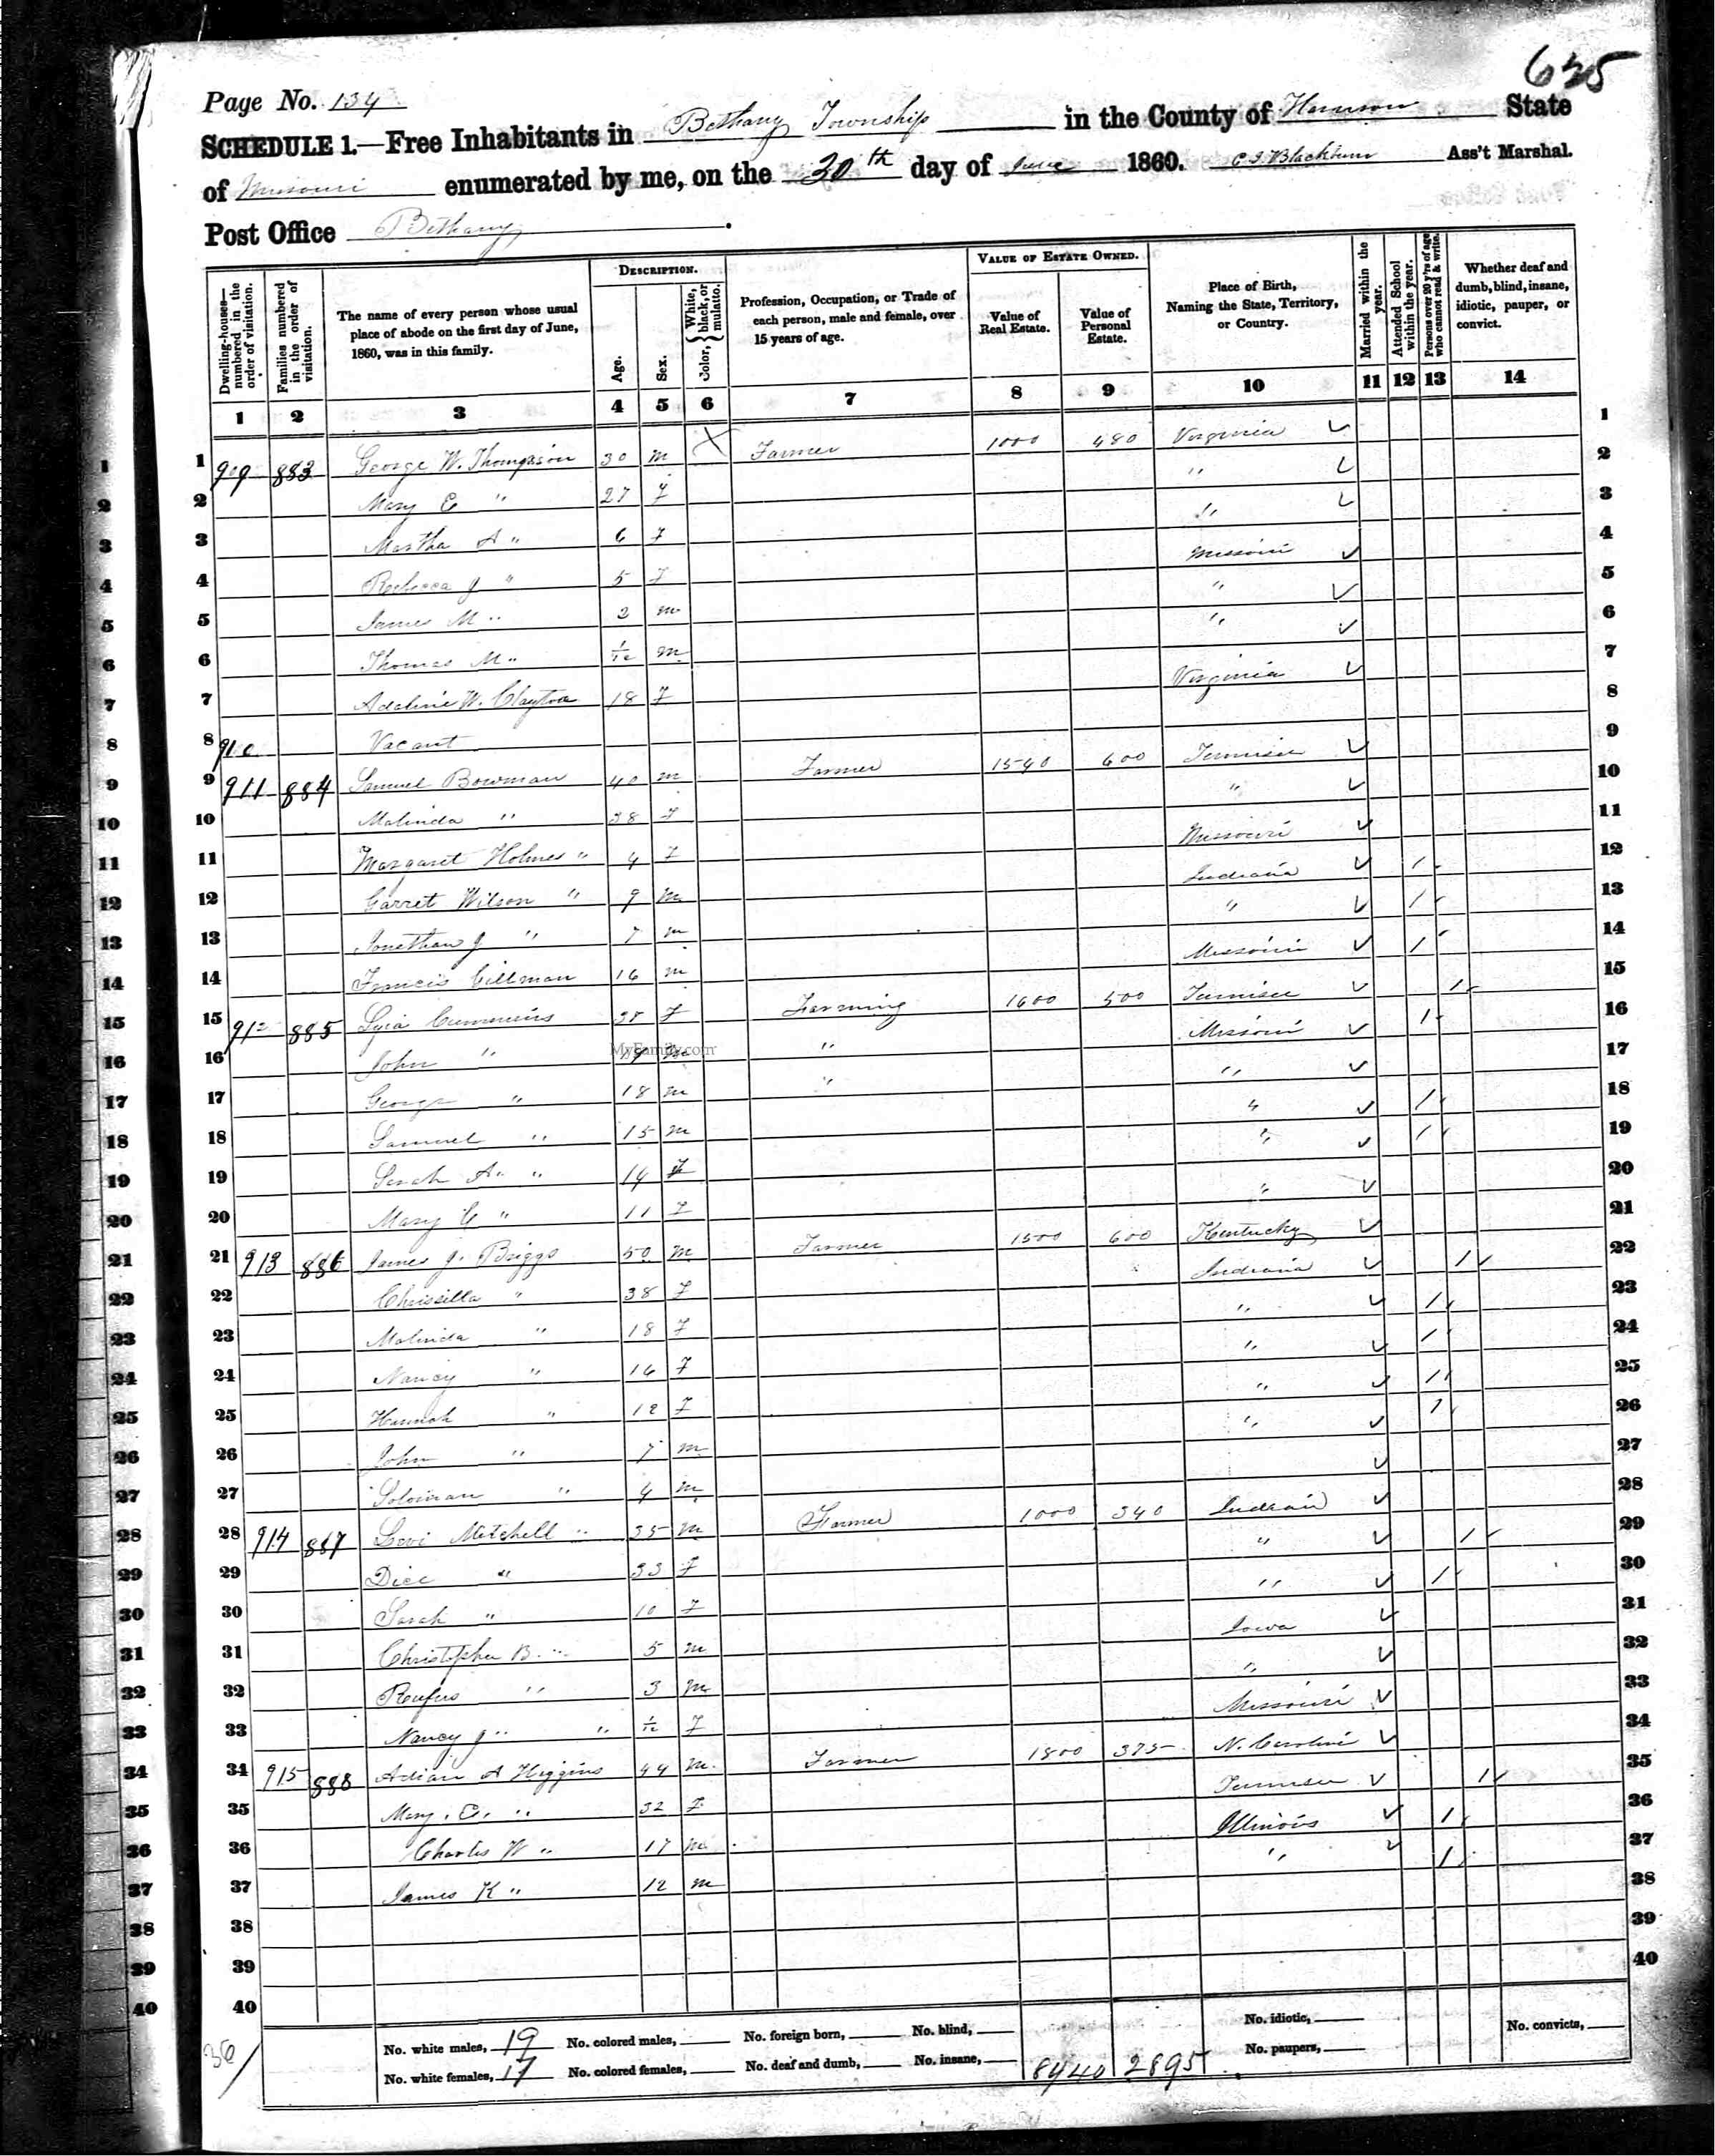 625
Page No. 134
SCHEDULE 1.—Free Inhabitants in Bethany Township in the County of Harrison State
of Missouri enumerated by me, on the 30th day of June 1860. Blackburn Ass't Marshal.
Post Office Bethany.
Dwelling-houses—numbered in the order of visitation.
Families numbered in the order of visitation.
The name of every person whose usual place of abode on the first day of June, 1860, was in this family.
DESCRIPTION.
Age.
Sex.
Color, { White, black, or mulatto.
Profession, Occupation, or Trade of each person, male and female, over 15 years of age.
VALUE OF ESTATE OWNED.
Value of Real Estate.
Value of Personal Estate.
Place of Birth, Naming the State, Territory, or Country.
Married within the year.
Attended School within the year.
Persons over 20 y'rs of age who cannot read & write.
Whether deaf and dumb, blind, insane, idiotic, pauper, or convict.
1 2 3 4 5 6 7 8 9 10 11 12 13 14
1 909 883 George W. Thompson 30 m Farmer 1000 480 Virginia 1
2 Mary E " 27 F " 2
3 Martha A " 6 F " 3
4 Rebecca J " 5 F Missouri 4
5 James M " 2 m " 5
6 Thomas M " 1/12 m " 6
7 Adeline W. Clayton 18 F Virginia 7
8 910 Vacant 8
9 911 884 Samuel Bowman 40 m Farmer 1540 600 Tennisee 9
10 Malinda " 38 F " 10
11 Margaret Holmes " 4 F Missouri 11
12 Garret Wilson " 9 m Indiana 1 12
13 Jonathan J " 7 m " 1 13
14 Francis Cillman 16 m Missouri 1 14
15 912 885 Cummins F Farming 1600 500 Tennisee 1 15
16 John " m " Missouri 1 16
17 George " 18 m " " 17
18 Samuel " 15 m " 1 18
19 Sarah A " 14 F " 1 19
20 Mary " 11 F " 20
21 913 886 James J. Briggs 50 m Farmer 1500 600 Kentucky 21
22 Chrissilla " 38 F Indiana 1 22
23 Malinda " 18 F " 1 23
24 Nancy " 16 F " 1 24
25 Hannah " 12 F " 1 25
26 John " 7 m " 1 26
27 Soloman " 4 m 27
28 914 887 Levi Mitchell " 35 m Farmer 1000 340 Indiana 28
29 Dice " 33 F " 1 29
30 Sarah " 10 F " 1 30
31 Christopher B. " 5 m Iowa 31
32 Rufus " 3 m " 32
33 Nancy J " " 1/12 F Missouri 33
34 915 888 Adian A Higgins 44 m Farmer 1800 375 N. Carolina 34
35 Mary E. " 32 F Tennisee 1 35
36 Charles W " 17 m Illinois 1 36
37 James K " 12 m " 1 37
38 38
39 39
40 40
36
No. white males, 19 No. colored males, No. foreign born, No. blind, No. idiotic, No. convicts,
No. white females, 17 No. colored females, No. deaf and dumb, No. insane, 8940 2895 No. paupers,
MyFamily.com